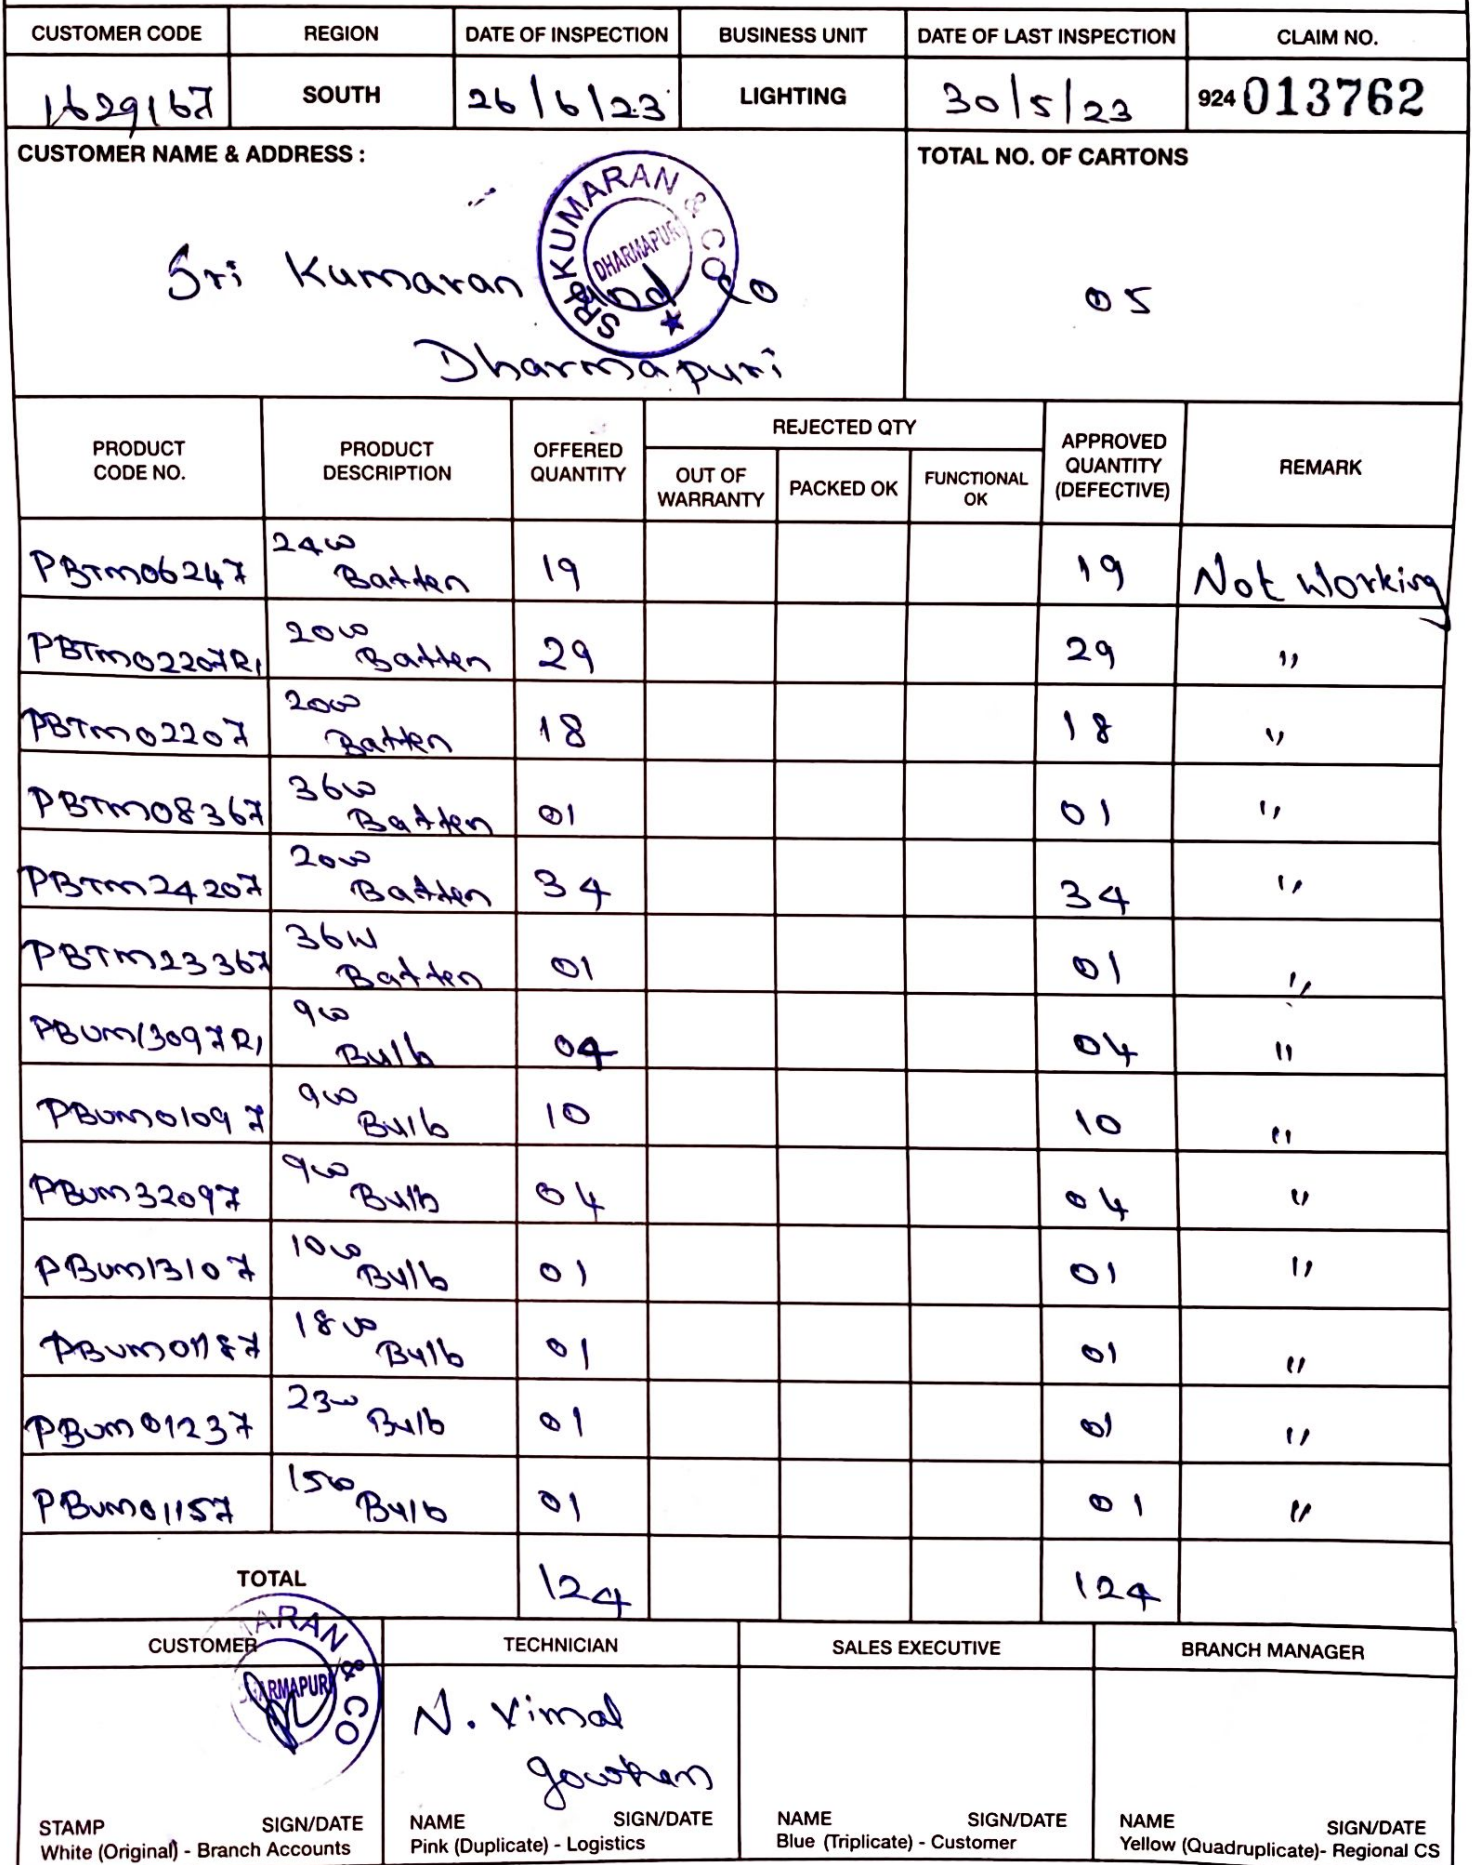 CUSTOMER CODE REGION DATE OF INSPECTION BUSINESS UNIT DATE OF LAST INSPECTION CLAIM NO.
1629167 SOUTH 26/6/23 LIGHTING 30/5/23 924 013762
CUSTOMER NAME & ADDRESS : TOTAL NO. OF CARTONS
SRI KUMARAN & CO
DHARMAPURI
Sri Kumaran and co 05
Dharmapuri
PRODUCT CODE NO. PRODUCT DESCRIPTION OFFERED QUANTITY REJECTED QTY APPROVED QUANTITY (DEFECTIVE) REMARK
OUT OF WARRANTY PACKED OK FUNCTIONAL OK
PBTM06247 24W Batten 19 19 Not Working
PBTM02207R1 20W Batten 29 29 "
PBTM02207 20W Batten 18 18 "
PBTM08367 36W Batten 01 01 "
PBTM24207 20W Batten 34 34 "
PBTM23367 36W Batten 01 01 "
PBUM13097R1 9W Bulb 04 04 "
PBUM01097 9W Bulb 10 10 "
PBUM32097 9W Bulb 04 04 "
PBUM13107 10W Bulb 01 01 "
PBUM01187 18W Bulb 01 01 "
PBUM01237 23W Bulb 01 01 "
PBUM01157 15W Bulb 01 01 "
TOTAL 124 124
CUSTOMER TECHNICIAN SALES EXECUTIVE BRANCH MANAGER
ARAN & CO
ARMAPURI
N. Vimal
STAMP SIGN/DATE NAME SIGN/DATE NAME SIGN/DATE NAME SIGN/DATE
White (Original) - Branch Accounts Pink (Duplicate) - Logistics Blue (Triplicate) - Customer Yellow (Quadruplicate)- Regional CS